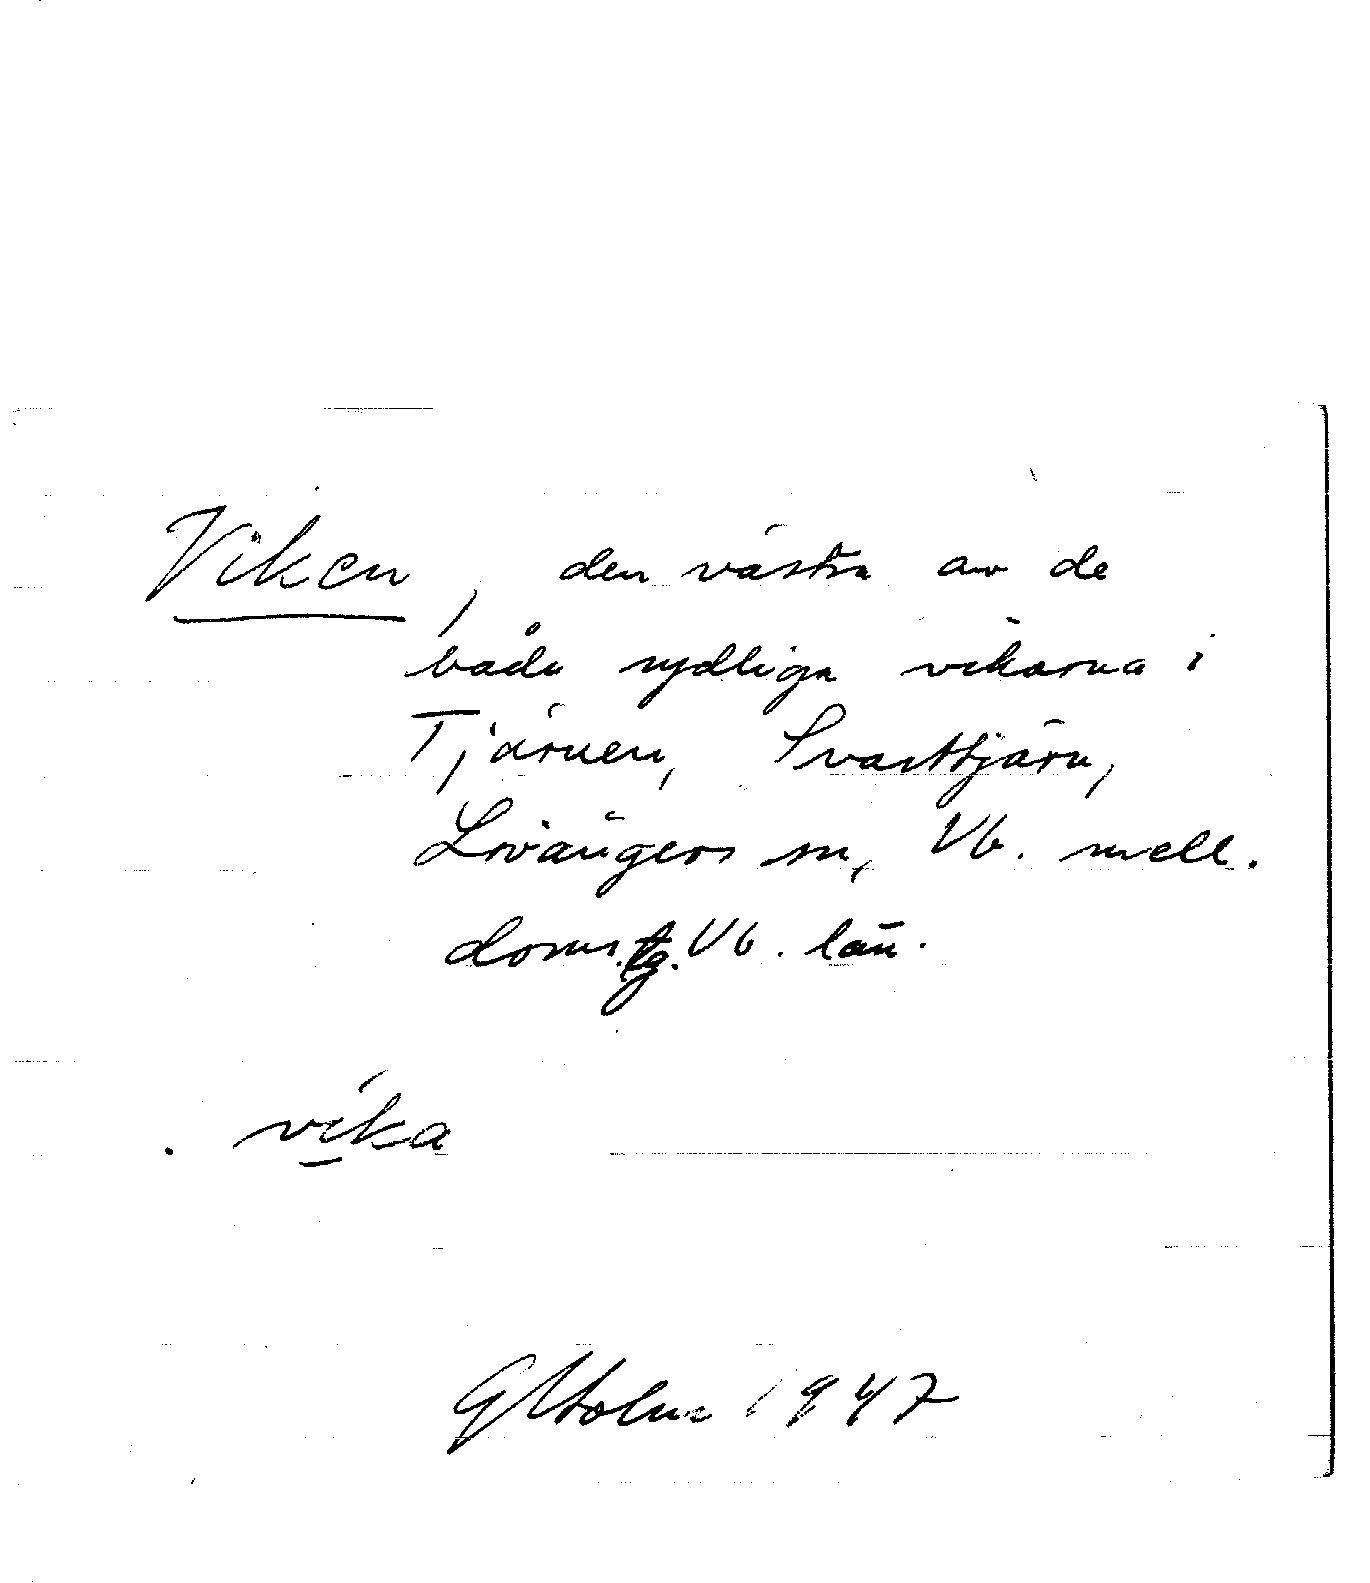 Viken, den västra av de
både sydliga vikarna i
Tjärnen, Svarttjärn,
Lövångers sn, Vb. mell.
doms.tg. Vb. län.
víka
GHolm 1947